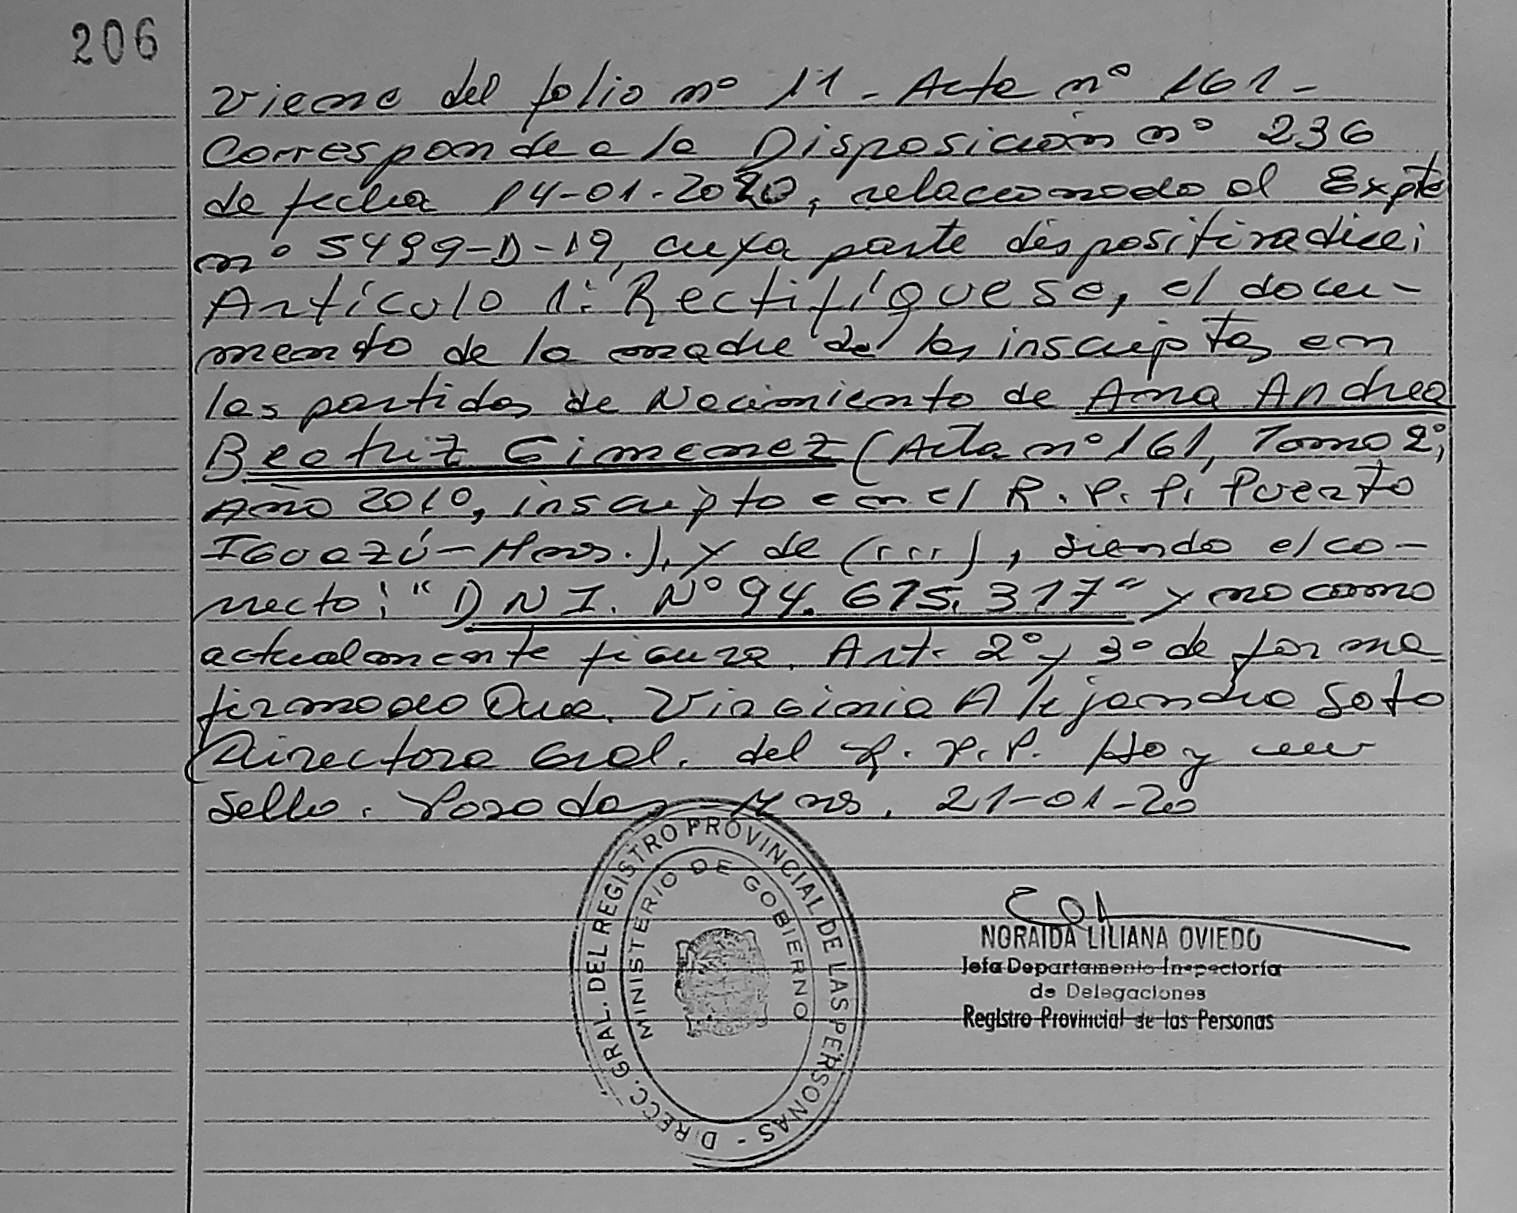 206
Viene del folio nº 11 - Acta nº 161 -
Corresponde a la Disposición nº 236
de fecha 14-01-2020, relacionado al Expte
nº 5499-D-19, cuya parte dispositiva dice:
Artículo 1: Rectifíquese, el docu-
mento de la madre de las inscriptas en
las partidas de Nacimiento de Ana Andrea
Beatriz Gimenez (Acta nº 161, Tomo 2º,
Año 2010, inscripto en el R.P.P. Puerto
Iguazú-Mnes.), y de (...), siendo el co-
rrecto: "DNI. Nº 94.675.317" y no como
actualmente figura. Art. 2º y 3º de forma
firmado Dra. Virginia Alejandra Soto
Directora Gral. del R.P.P. Hay un
sello. Posadas - Mns. 21-01-20
DIRECC. GRAL. DEL REGISTRO PROVINCIAL DE LAS PERSONAS -
MINISTERIO DE GOBIERNO
NORAIDA LILIANA OVIEDO
Jefa Departamento Inspectoría
de Delegaciones
Registro Provincial de las Personas